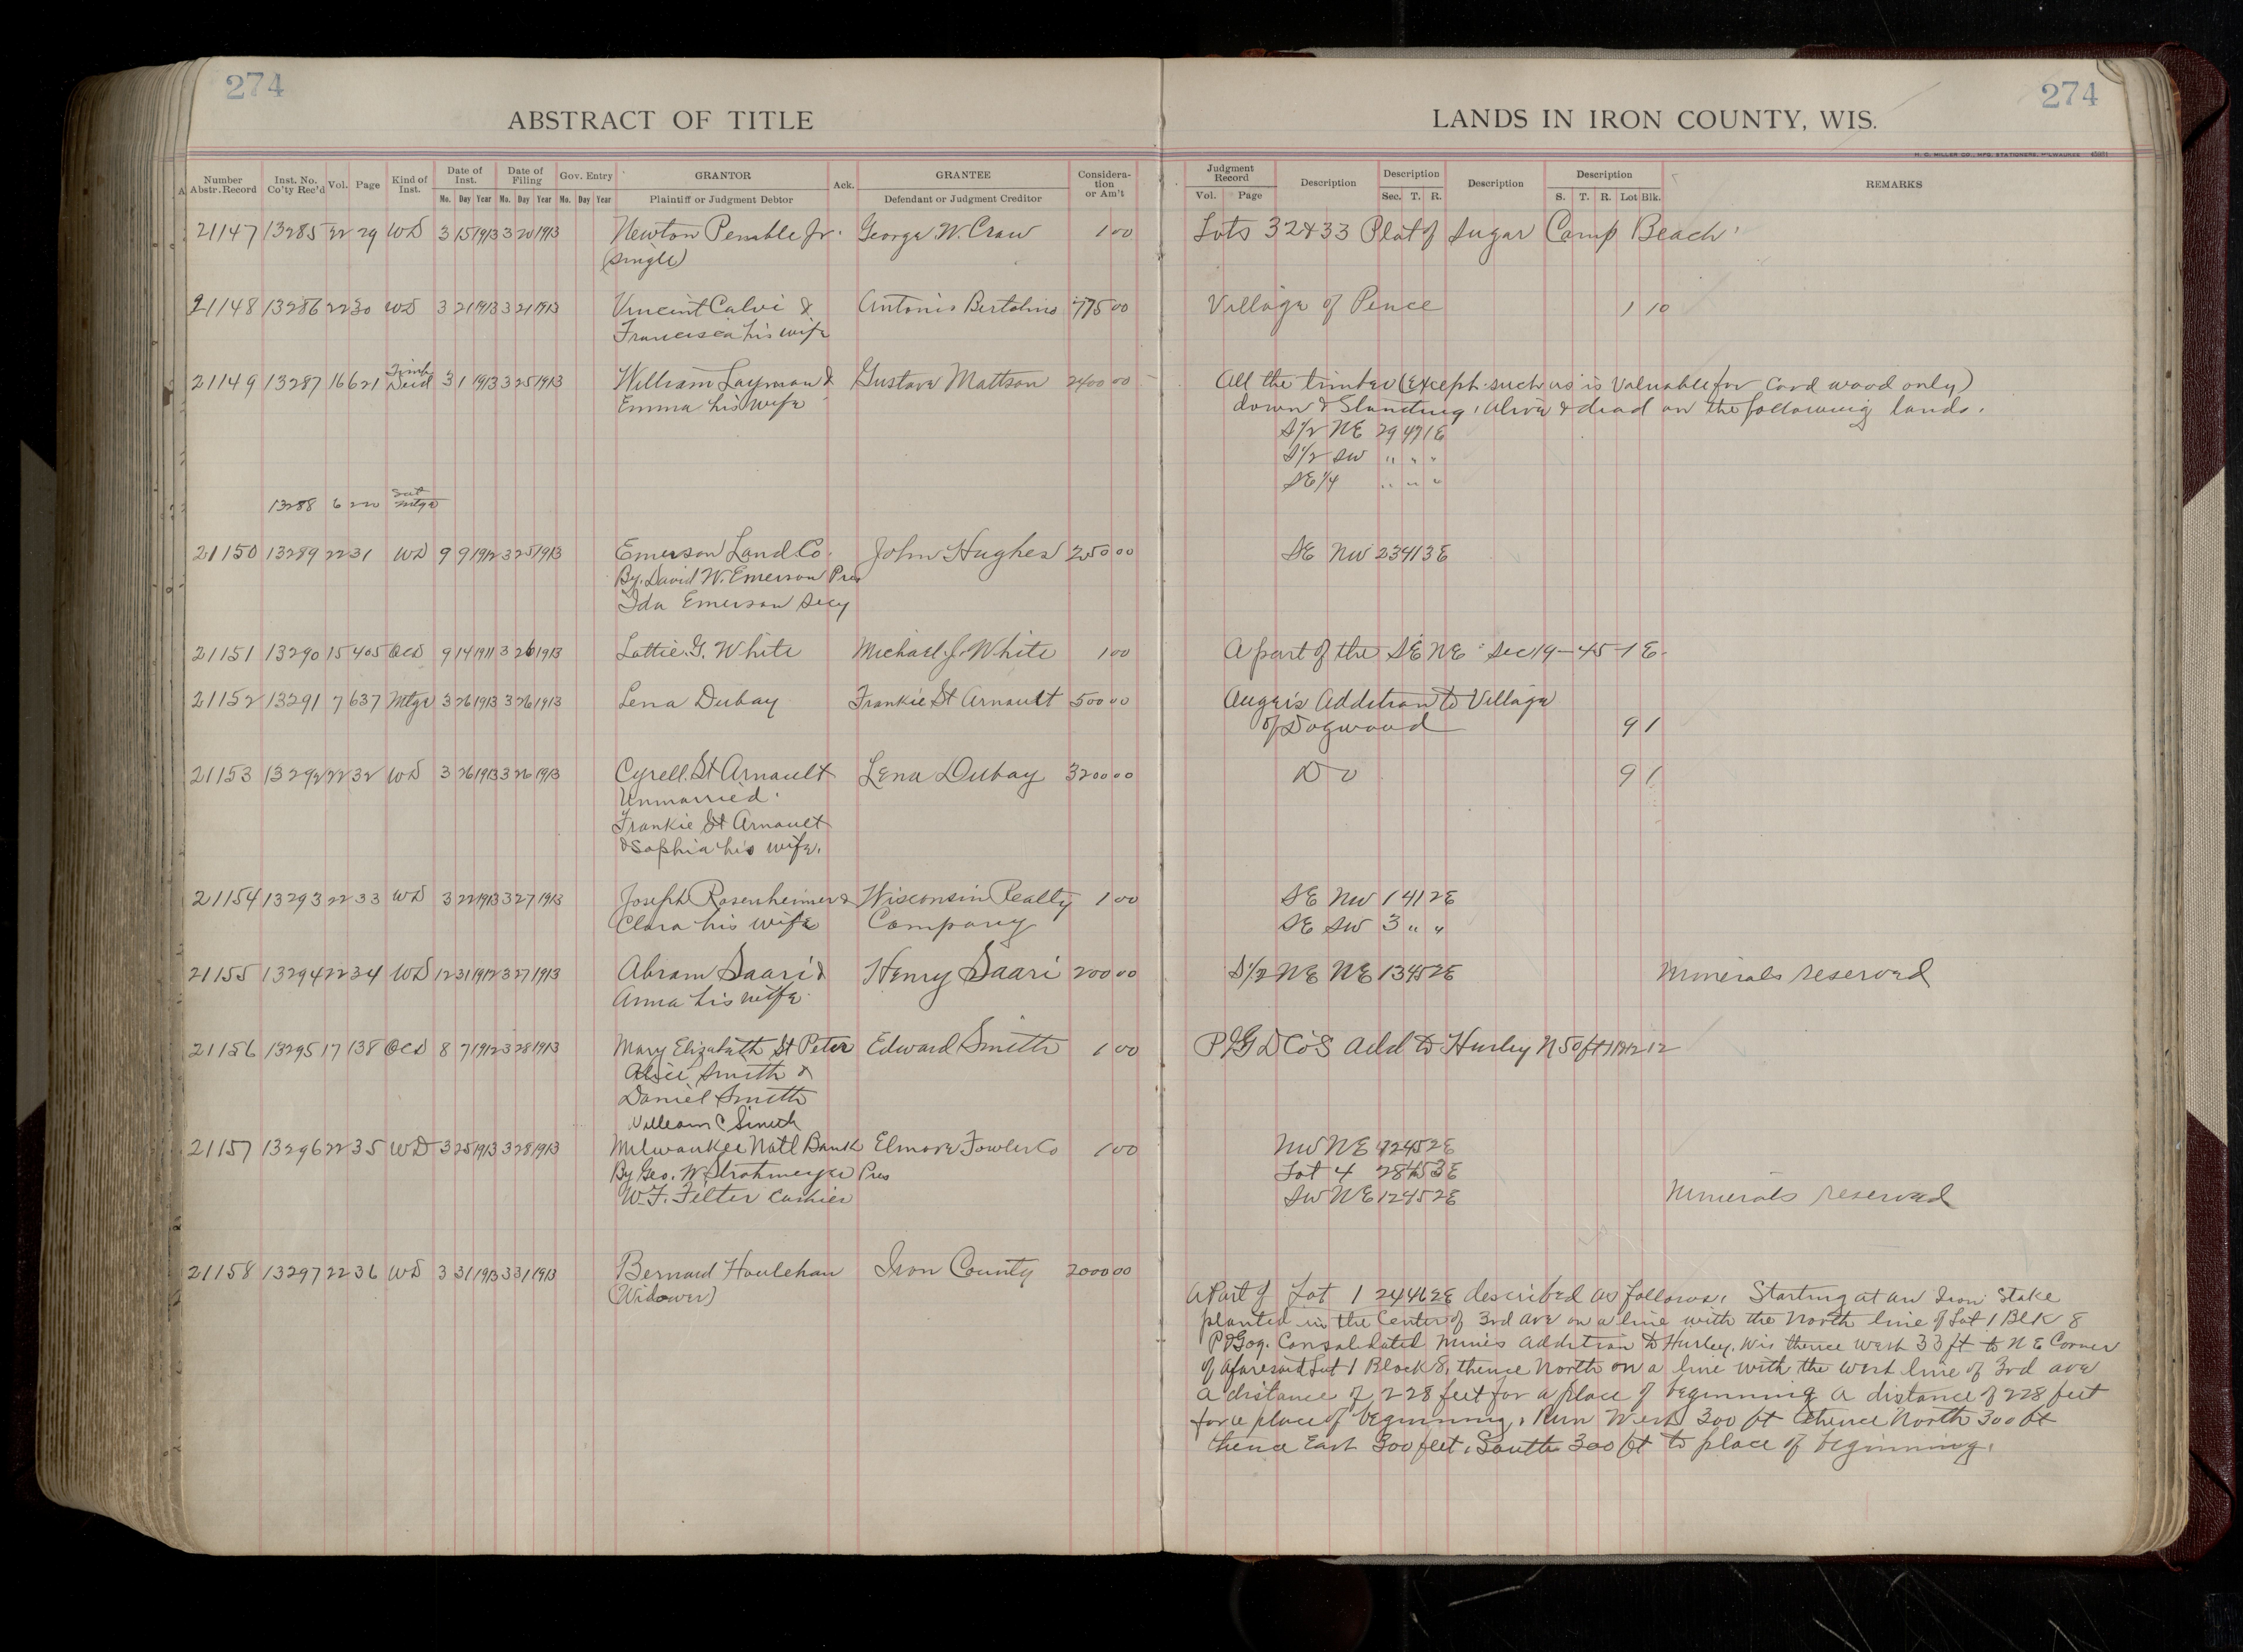 274
274
ABSTRACT OF TITLE
LANDS IN IRON COUNTY, WIS.
H. C. MILLER CO., MFG. STATIONERS, MILWAUKEE
A Number Abstr. Record Inst. No. Co'ty Rec'd Vol. Page Kind of Inst. Date of Inst. Date of Filing Gov. Entry GRANTOR Ack. GRANTEE Considera-tion or Am't Judgment Record Description Description Description Description REMARKS
Mo. Day Year Mo. Day Year Mo. Day Year Plaintiff or Judgment Debtor Defendant or Judgment Creditor Vol. Page Sec. T. R. S. T. R. Lot Blk.
21147 13285 22 29 WD 3 15 1913 3 20 1913 Newton Penable Jr. George W. Craw 1 00 Lots 32 & 33 Plat of Sugar Camp Beach
(Single)
21148 13286 22 30 WD 3 21 1913 3 21 1913 Vincent Calvi & Antonio Bertolino 775 00 Village of Pence 1 10
Francisca his wife
21149 13287 16 621 Timb Deed 3 1 1913 3 25 1913 William Layman & Gustave Mattson 2400 00 All the timber (Except such as is Valuable for Cord wood only)
Emma his wife down & Standing, Alive & dead on the following lands.
S1/2 NE 29 47 1E
S1/2 SW " " "
SE1/4 " " "
13288 6 220 Sat Mtge
21150 13289 22 31 WD 9 9 1912 3 25 1913 Emerson Land Co. John Hughes 250 00 SE NW 23 41 3E
By. David W. Emerson Pres
Ida Emerson Secy
21151 13290 15 405 QCD 9 14 1911 3 26 1913 Lottie. G. White Michael J. White 1 00 A part of the SE NE Sec 19-45-1E.
21152 13291 7 637 Mtge 3 26 1913 3 26 1913 Lena Dubay Frankie St Arnault 500 00 Auger's Addition to Village
of Dogwood 9 1
21153 13292 22 32 WD 3 26 1913 3 26 1913 Cyrell. St Arnault Lena Dubay 3200 00 Do 9 1
Unmarried.
Frankie St Arnault
& Sophia his wife.
21154 13293 22 33 WD 3 22 1913 3 27 1913 Joseph Rosenheimer & Wisconsin Realty 1 00 SE NW 1 41 2E
Clara his wife Company SE SW 3 " "
21155 13294 22 34 WD 12 31 1912 3 27 1913 Abram Saari & Henry Saari 200 00 S1/2 NE NE 13 45 2E Minerals reserved
Anna his wife
21156 13295 17 138 QCD 8 7 1912 3 28 1913 Mary Elizabeth St Peter Edward Smith 1 00 P & G D Co's Add to Hurley N 50 ft 12
Alice Smith &
Daniel Smith
William C Smith
21157 13296 22 35 WD 3 25 1913 3 28 1913 Milwaukee Natl Bank Elmore Fowler Co 1 00 NW NE 12 45 2E
By Geo. W. Strohmeyer Pres Lot 4 28 45 3E
W. F. Filter Cashier SW NE 12 45 2E Minerals reserved
21158 13297 22 36 WD 3 31 1913 3 31 1913 Bernard Houlehan Iron County 2000 00
(Widower)
A Part of Lot 1 24 46 2E described as follows. Starting at an Iron Stake
planted in the Center of 3rd ave on a line with the North line of Lot 1 Blk 8
P & Gog. Consolidated Mines Addition to Hurley, Wis thence West 33 ft to N E Corner
of aforesaid Lot 1 Block 8, thence North on a line with the West line of 3rd ave
a distance of 228 feet for a place of beginning a distance of 228 feet
for a place of beginning, Run West 300 ft thence North 300 ft
thence East 300 feet, South 300 ft to place of beginning.